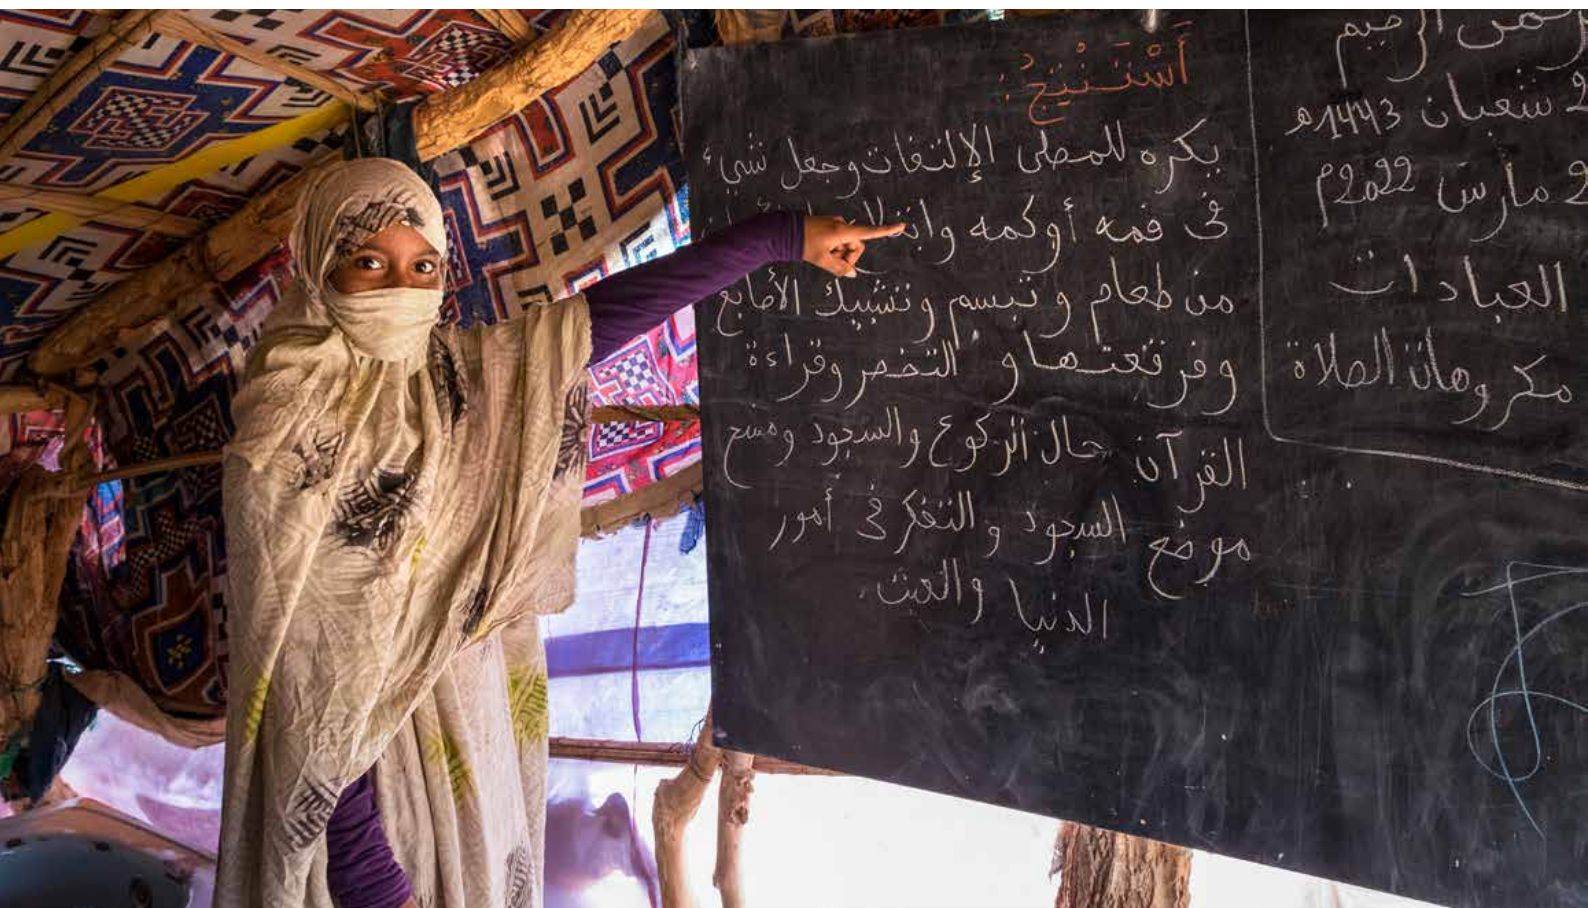 الرحيم
شعبان 1443ه
مارس 2022م
العبادات
مكروهات الصلاة
أَسْتَنْتِجُ:
يكره للمصلى الإلتفات وجعل شيء
فى فمه أو كمه
من طعام و تبسم وتشبيك الأصابع
وفرقعتها و التخصر وقراءة
القرآن حال الركوع والسجود ومسح
موضع السجود والتفكر فى أمور
الدنيا والعبث.